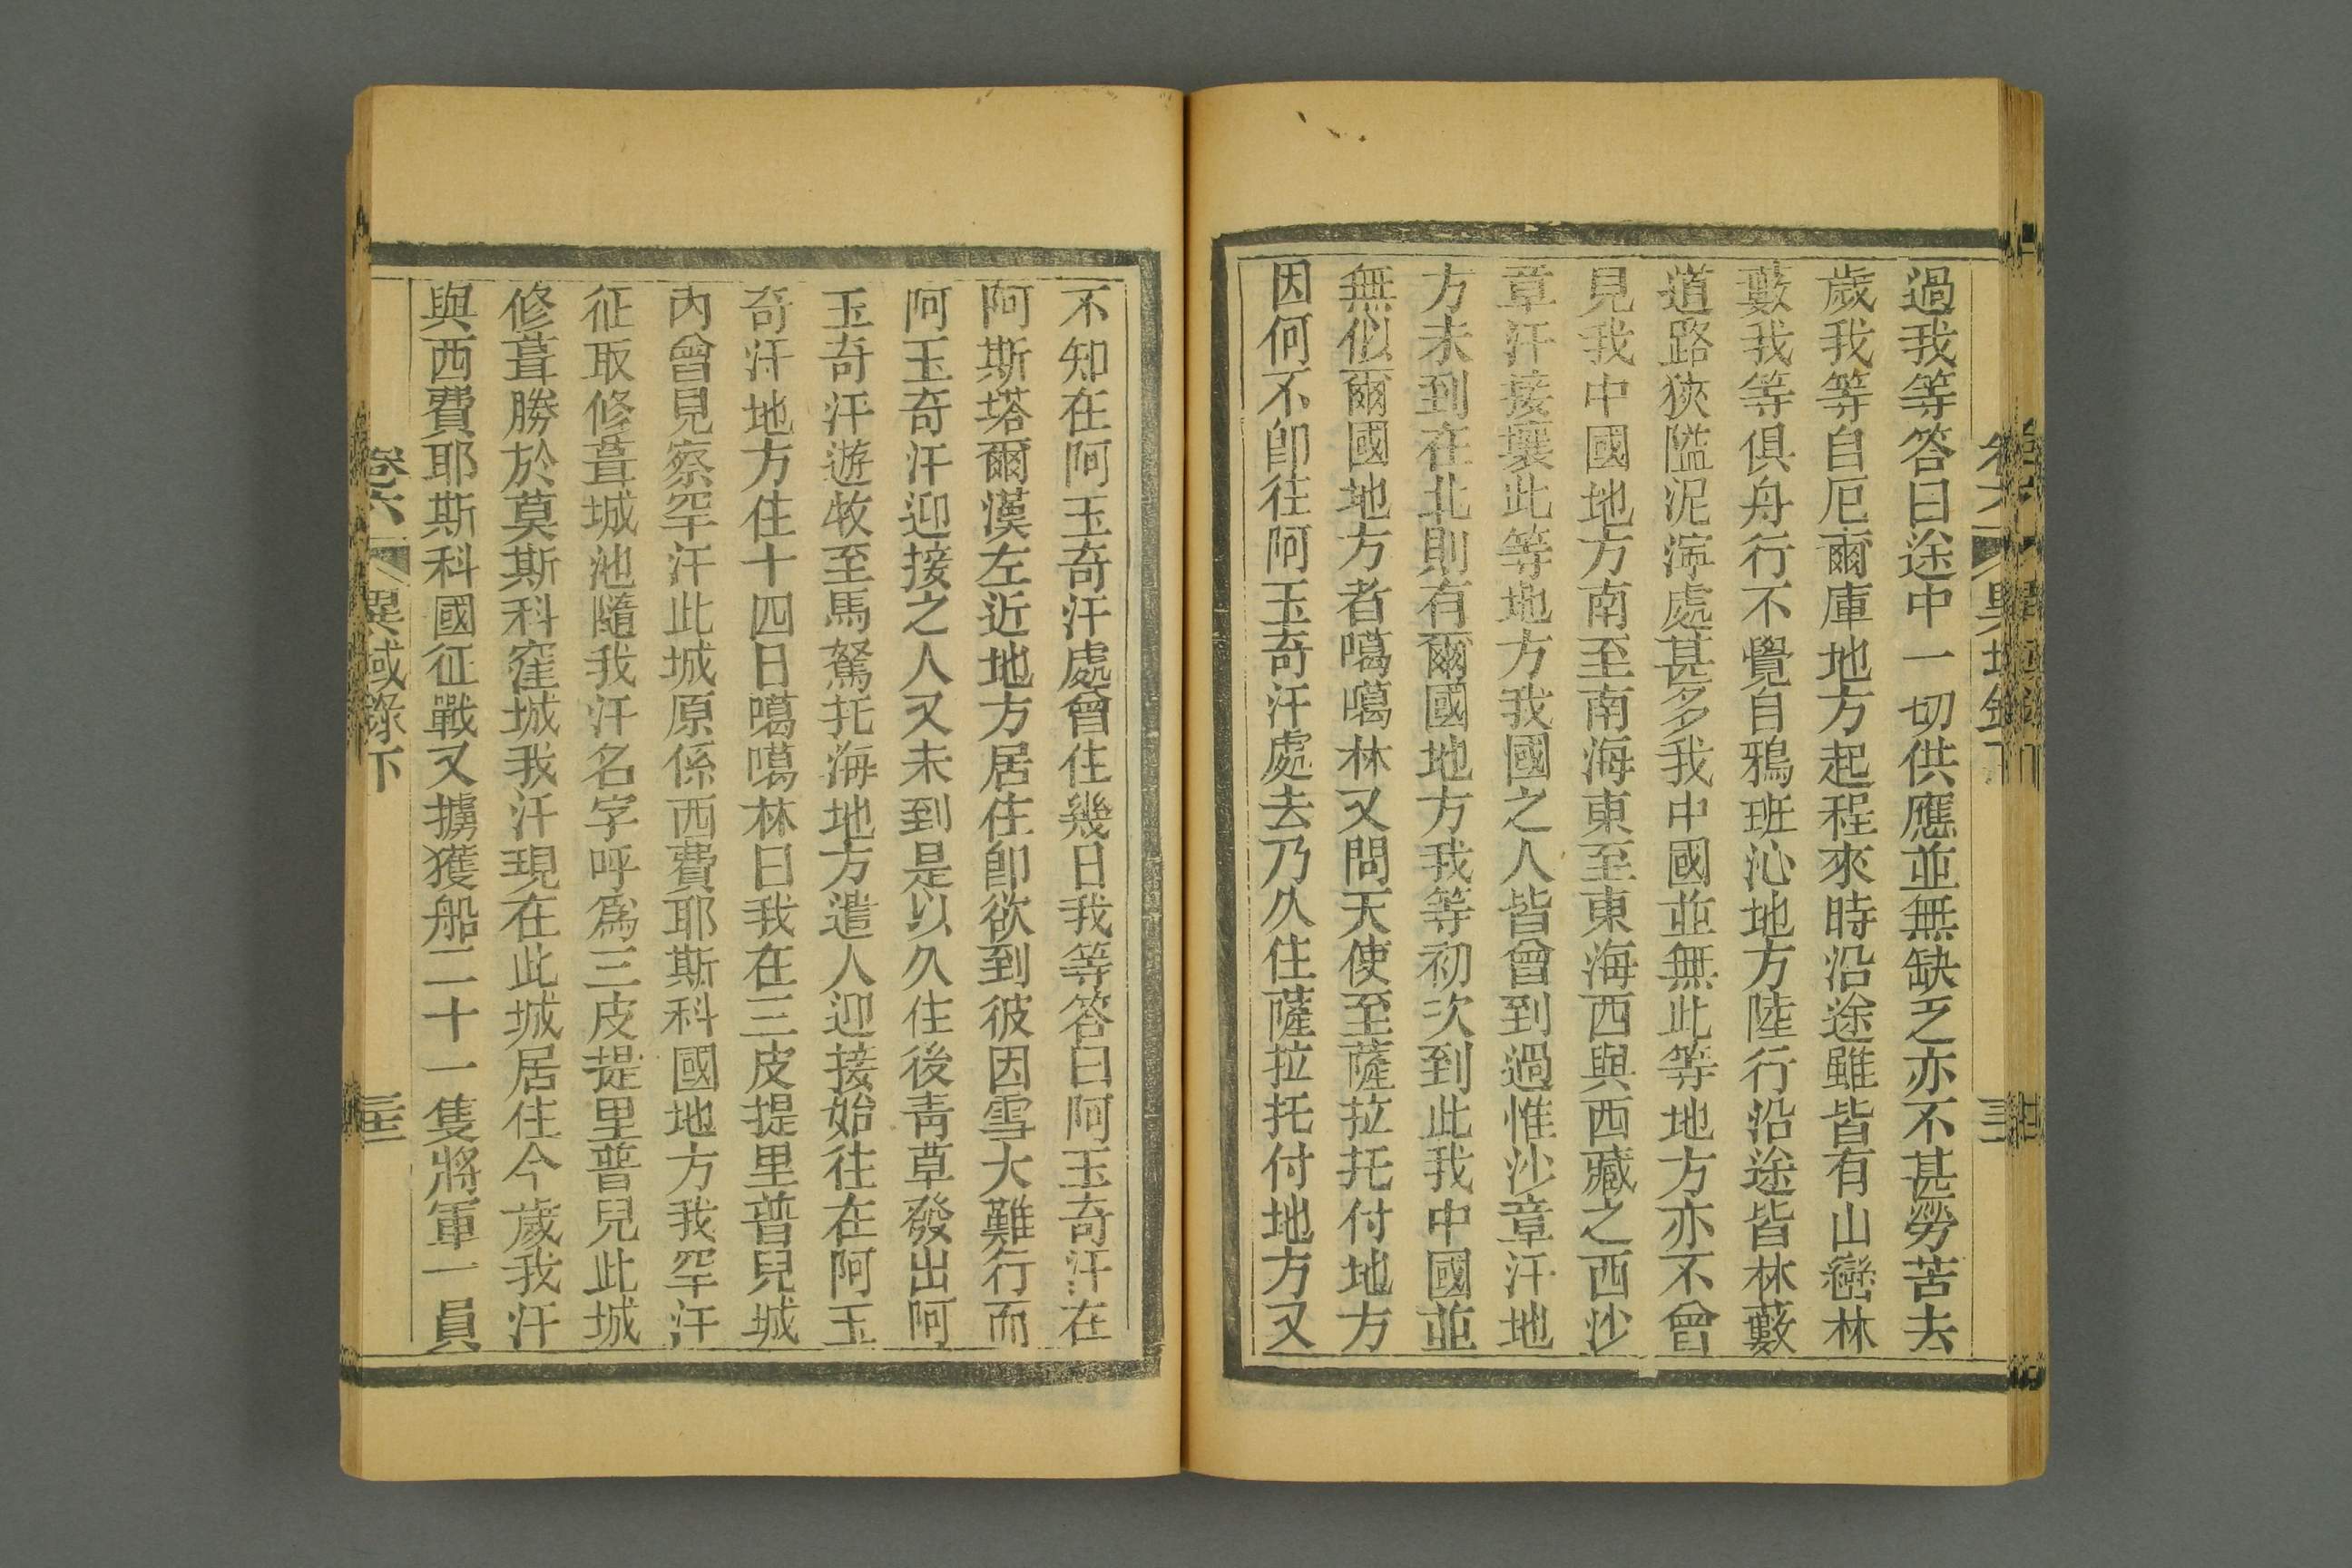 過我等答曰途中一切供應並無缺乏亦不甚勞苦去
歲我等自厄爾庫地方起程來時沿途雖皆有山巒林
藪我等俱舟行不覺自鴉班沁地方陸行沿途皆林藪
道路狹隘泥濘處甚多我中國並無此等地方亦不曾
見我中國地方南至南海東至東海西與西藏之西沙
章汗接壤此等地方我國之人皆曾到過惟沙章汗地
方未到在北則有爾國地方我等初次到此我中國並
無似爾國地方者噶噶林又問天使至薩拉托付地方
因何不卽往阿玉奇汗處去乃久住薩拉托付地方又
不知在阿玉奇汗處曾住幾日我等答曰阿玉奇汗在
阿斯塔爾漢左近地方居住卽欲到彼因雪大難行而
阿玉奇汗迎接之人又未到是以久住後靑草發出阿
玉奇汗遊牧至馬駑托海地方遣人迎接始往在阿玉
奇汗地方住十四日噶噶林曰我在三皮提里普兒城
內曾見察罕汗此城原係西費耶斯科國地方我罕汗
征取修葺城池隨我汗名字呼爲三皮提里普兒此城
修葺勝於莫斯科窪城我汗現在此城居住今歲我汗
與西費耶斯科國征戰又擄獲船二十一隻將軍一員
卷六
異域錄下